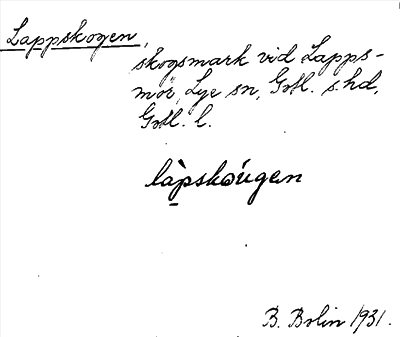 Lappskogen,
skogsmark vid Lapps-
mör, Lye sn, Gotl. s. hd,
Gotl. l.
làpskóugen
B. Bolin 1931.